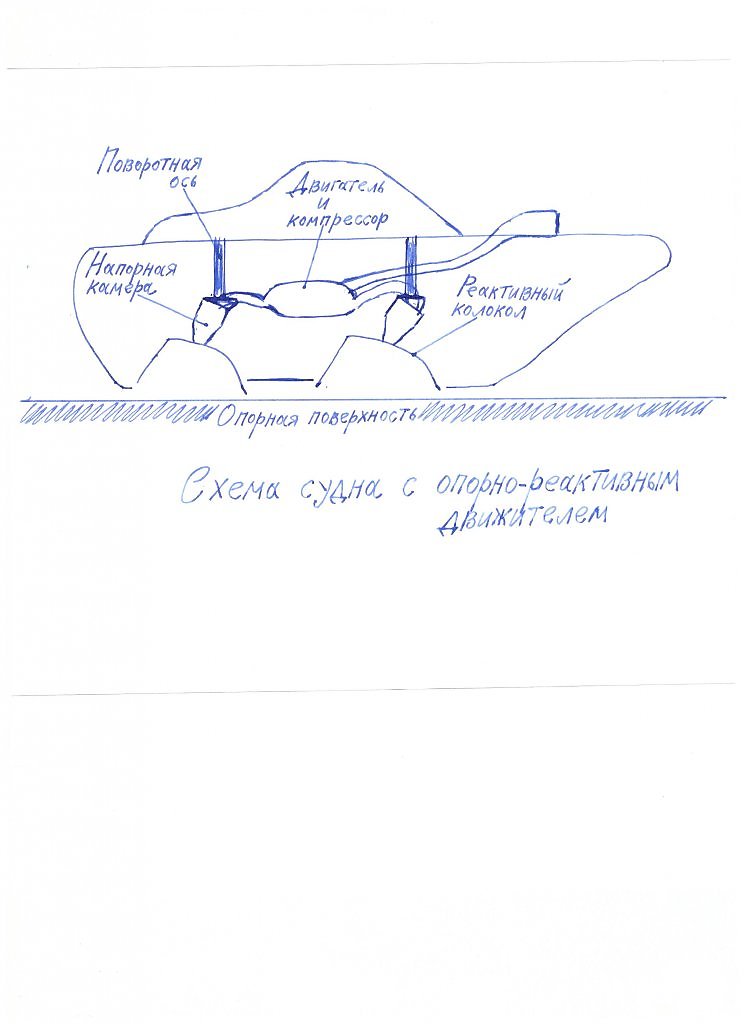 Поворотная
ось
Двигатель
и
компрессор
Напорная
камера
Реактивный
колокол
Опорная поверхность
Схема судна с опорно-реактивным
движителем